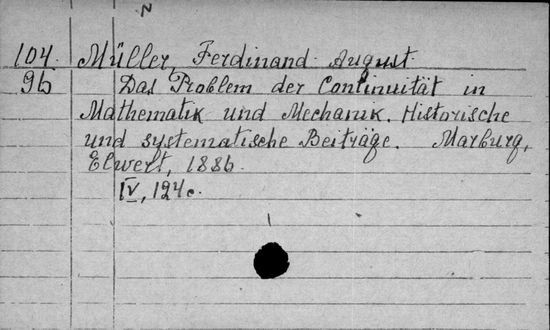 N
104 Müller, Ferdinand August
96 Das Problem der Continuität in
Mathematik und Mechanik. Historische
und systematische Beiträge. Marburg,
Elwert, 1886.
IV, 124 c.